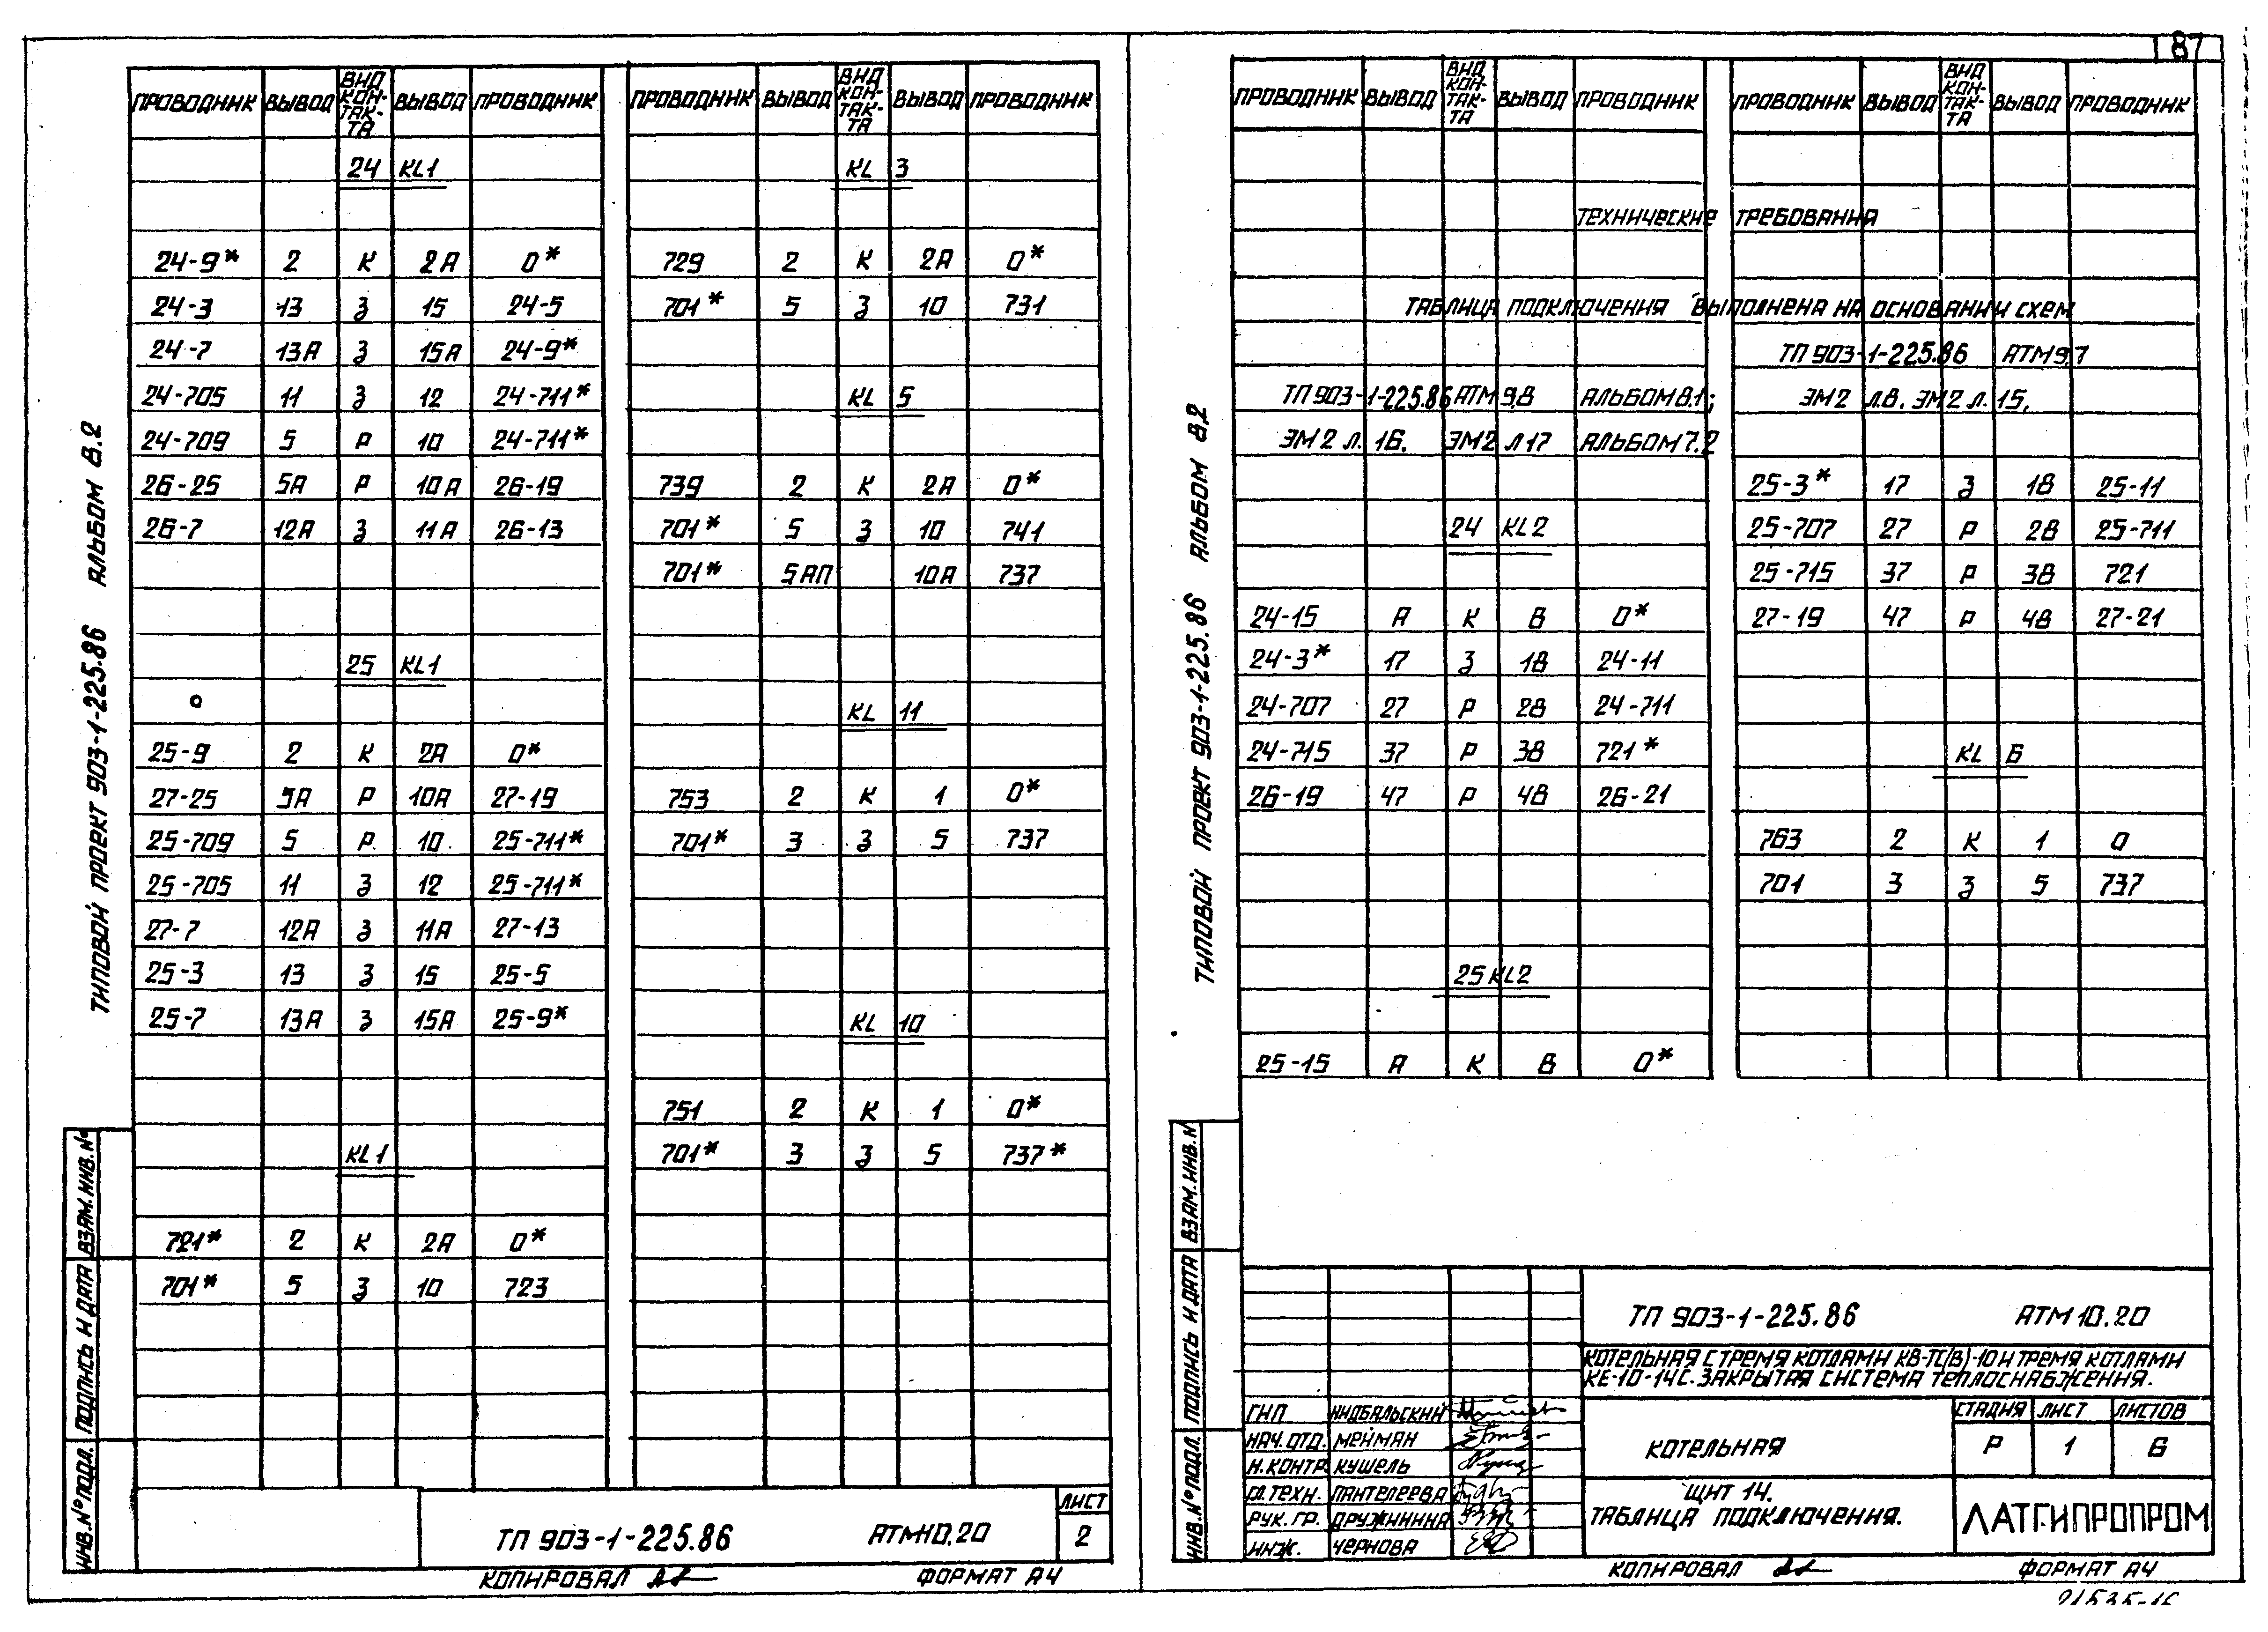 87
ТИПОВОЙ ПРОЕКТ 903-1-225.86 АЛЬБОМ 8.2
ПРОВОДНИК ВЫВОД ВИД КОН-ТАК-ТА ВЫВОД ПРОВОДНИК
24 KL1
24-9* 2 К 2А 0*
24-3 13 З 15 24-5
24-7 13А З 15А 24-9*
24-705 11 З 12 24-711*
24-709 5 Р 10 24-711*
26-25 5А Р 10А 26-19
26-7 12А З 11А 26-13
25 KL1
25-9 2 К 2А 0*
27-25 9А Р 10А 27-19
25-709 5 Р 10 25-711*
25-705 11 З 12 25-711*
27-7 12А З 11А 27-13
25-3 13 З 15 25-5
25-7 13А З 15А 25-9*
KL1
721* 2 К 2А 0*
701* 5 З 10 723
ПРОВОДНИК ВЫВОД ВИД КОН-ТАК-ТА ВЫВОД ПРОВОДНИК
KL 3
729 2 К 2А 0*
701* 5 З 10 731
KL 5
739 2 К 2А 0*
701* 5 З 10 741
701* 5АП 10А 737
KL 11
753 2 К 1 0*
701* 3 З 5 737
KL 10
751 2 К 1 0*
701* 3 З 5 737*
ИНВ.№ ПОДЛ. ПОДПИСЬ И ДАТА ВЗАМ.ИНВ.№
ТП 903-1-225.86 АТМ10.20
ЛИСТ
2
КОПИРОВАЛ
ФОРМАТ А4
ТИПОВОЙ ПРОЕКТ 903-1-225.86 АЛЬБОМ 8.2
ПРОВОДНИК ВЫВОД ВИД КОН-ТАК-ТА ВЫВОД ПРОВОДНИК
ПРОВОДНИК ВЫВОД ВИД КОН-ТАК-ТА ВЫВОД ПРОВОДНИК
ТЕХНИЧЕСКИЕ ТРЕБОВАНИЯ
ТАБЛИЦА ПОДКЛЮЧЕНИЯ ВЫПОЛНЕНА НА ОСНОВАНИИ СХЕМ
ТП 903-1-225.86 АТМ9.7
ТП 903-1-225.86 АТМ 9.8 АЛЬБОМ 8.1; ЭМ2 Л.8. ЭМ2 Л.15,
ЭМ2 Л. 16. ЭМ2 Л17 АЛЬБОМ 7.2
24 KL2
24-15 А К В 0*
24-3* 17 З 18 24-11
24-707 27 Р 28 24-711
24-715 37 Р 38 721*
26-19 47 Р 48 26-21
25 KL2
25-15 А К В 0*
25-3* 17 З 18 25-11
25-707 27 Р 28 25-711
25-715 37 Р 38 721
27-19 47 Р 48 27-21
KL 6
763 2 К 1 0
701 3 З 5 737
ИНВ.№ ПОДЛ. ПОДПИСЬ И ДАТА ВЗАМ.ИНВ.N
ТП 903-1-225.86 АТМ10.20
КОТЕЛЬНАЯ С ТРЕМЯ КОТЛАМИ КВ-ТС(В)-10 И ТРЕМЯ КОТЛАМИ
КЕ-10-14С. ЗАКРЫТАЯ СИСТЕМА ТЕПЛОСНАБЖЕНИЯ.
ГИП
НАЧ.ОТД. МЕЙМАН
Н.КОНТР. КУШЕЛЬ
ГЛ.ТЕХН. ПАНТЕЛЕЕВА
РУК. ГР. ДРУЖИНИНА
ИНЖ. ЧЕРНОВА
КОТЕЛЬНАЯ
СТАДИЯ ЛИСТ ЛИСТОВ
Р 1 6
ЩИТ 14.
ТАБЛИЦА ПОДКЛЮЧЕНИЯ.
ЛАТГИПРОПРОМ
КОПИРОВАЛ
ФОРМАТ А4